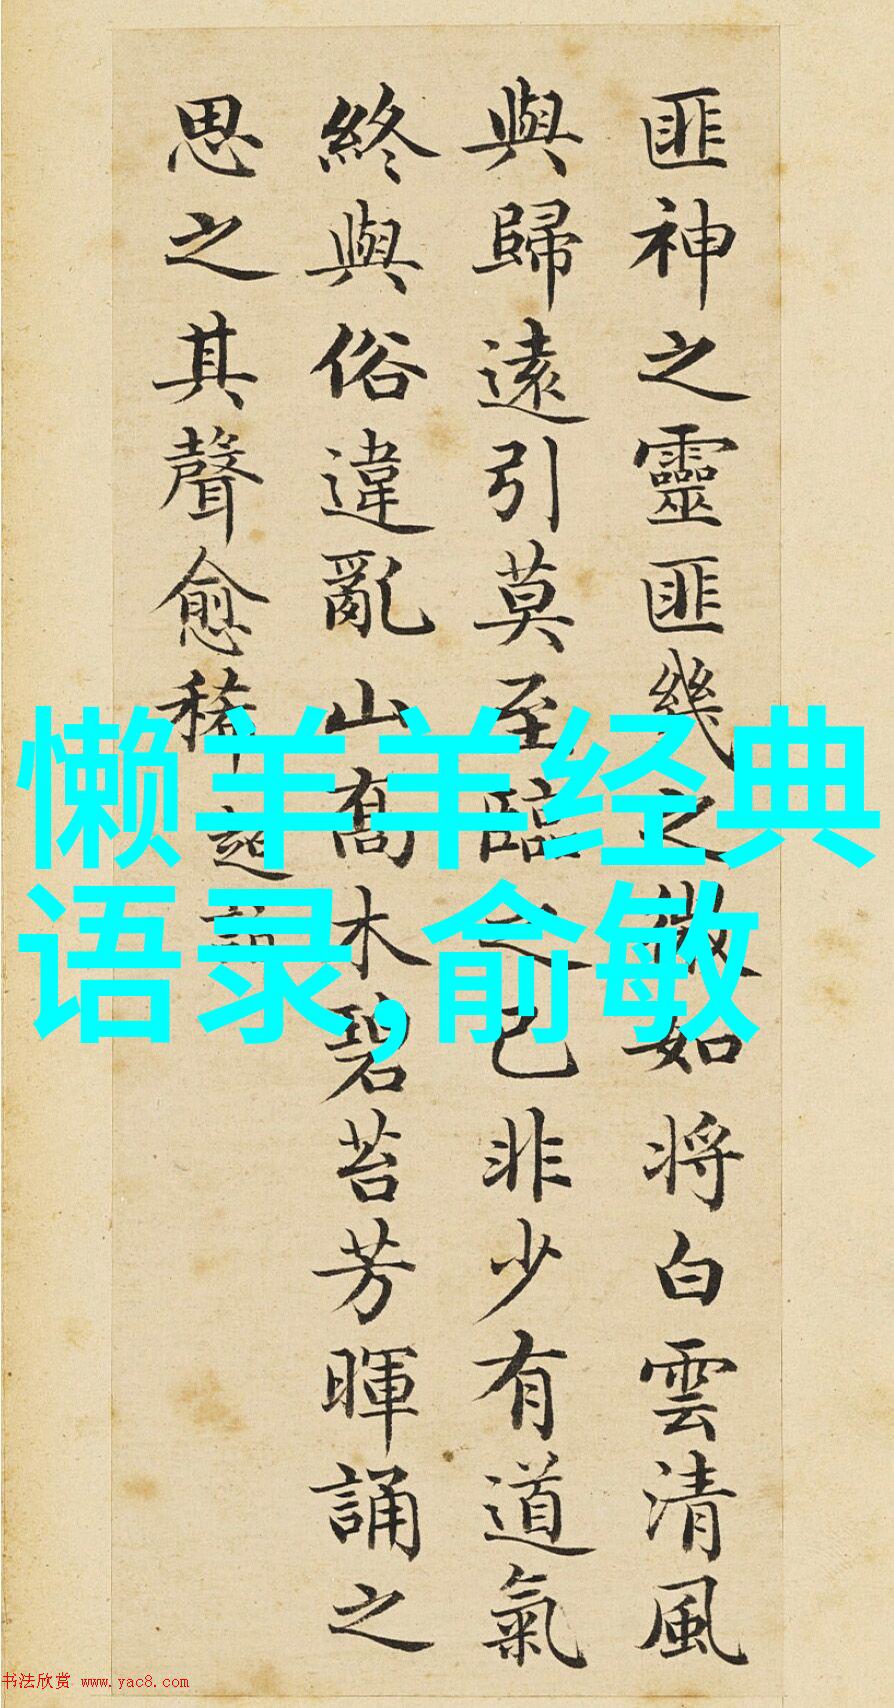 匪神之靈匪幾之微如将白雲清風
與歸遠引莫至臨之已非少有道氣
終與俗違亂山喬木碧苔芳暉誦之
思之其聲愈稀 超詣
懒羊羊经典
语录,俞敏
书法欣赏 www.yac8.com